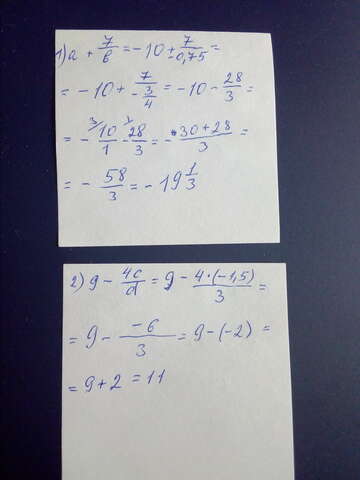 1) a + 7/в = -10 + 7/-0,75 =
= -10 + 7/-3/4 = -10 - 28/3 =
= - 10/1 - 28/3 = - 30+28/3 =
= - 58/3 = - 19 1/3
2) 9 - 4c/d = 9 - 4·(-1,5)/3 =
= 9 - -6/3 = 9-(-2) =
= 9+2 = 11